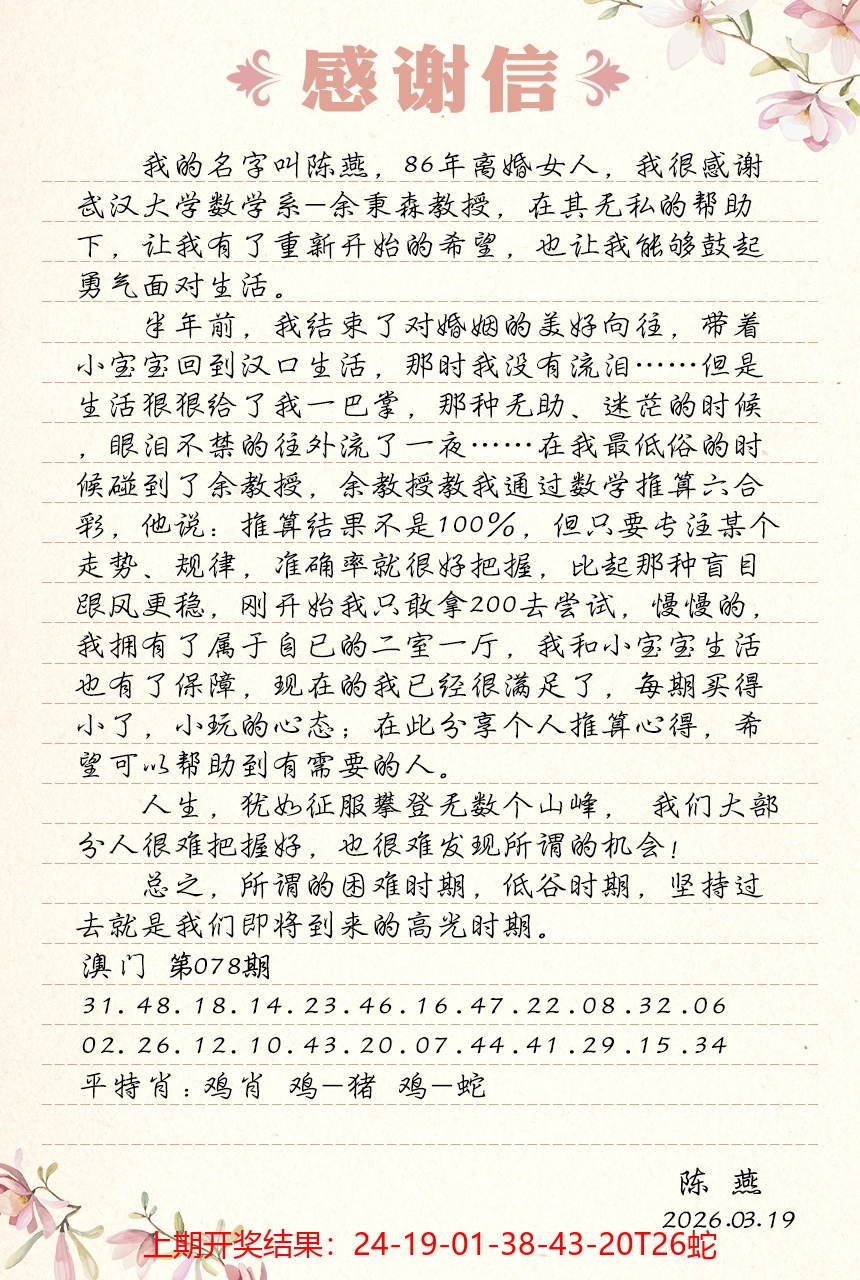 感谢信
我的名字叫陈燕，86年离婚女人，我很感谢
武汉大学数学系—余秉森教授，在其无私的帮助
下，让我有了重新开始的希望，也让我能够鼓起
勇气面对生活。
半年前，我结束了对婚姻的美好向往，带着
小宝宝回到汉口生活，那时我没有流泪……但是
生活狠狠给了我一巴掌，那种无助、迷茫的时候
，眼泪不禁的往外流了一夜……在我最低俗的时
候碰到了余教授，余教授教我通过数学推算六合
彩，他说：推算结果不是100%，但只要专注某个
走势、规律，准确率就很好把握，比起那种盲目
跟风更稳，刚开始我只敢拿200去尝试，慢慢的，
我拥有了属于自已的二室一厅，我和小宝宝生活
也有了保障，现在的我已经很满足了，每期买得
小了，小玩的心态；在此分享个人推算心得，希
望可以帮助到有需要的人。
人生，犹如征服攀登无数个山峰， 我们大部
分人很难把握好，也很难发现所谓的机会！
总之，所谓的困难时期，低谷时期，坚持过
去就是我们即将到来的高光时期。
澳门 第078期
31.48.18.14.23.46.16.47.22.08.32.06
02.26.12.10.43.20.07.44.41.29.15.34
平特肖：鸡肖 鸡—猪 鸡—蛇
陈 燕
2026.03.19
上期开奖结果：24-19-01-38-43-20T26蛇